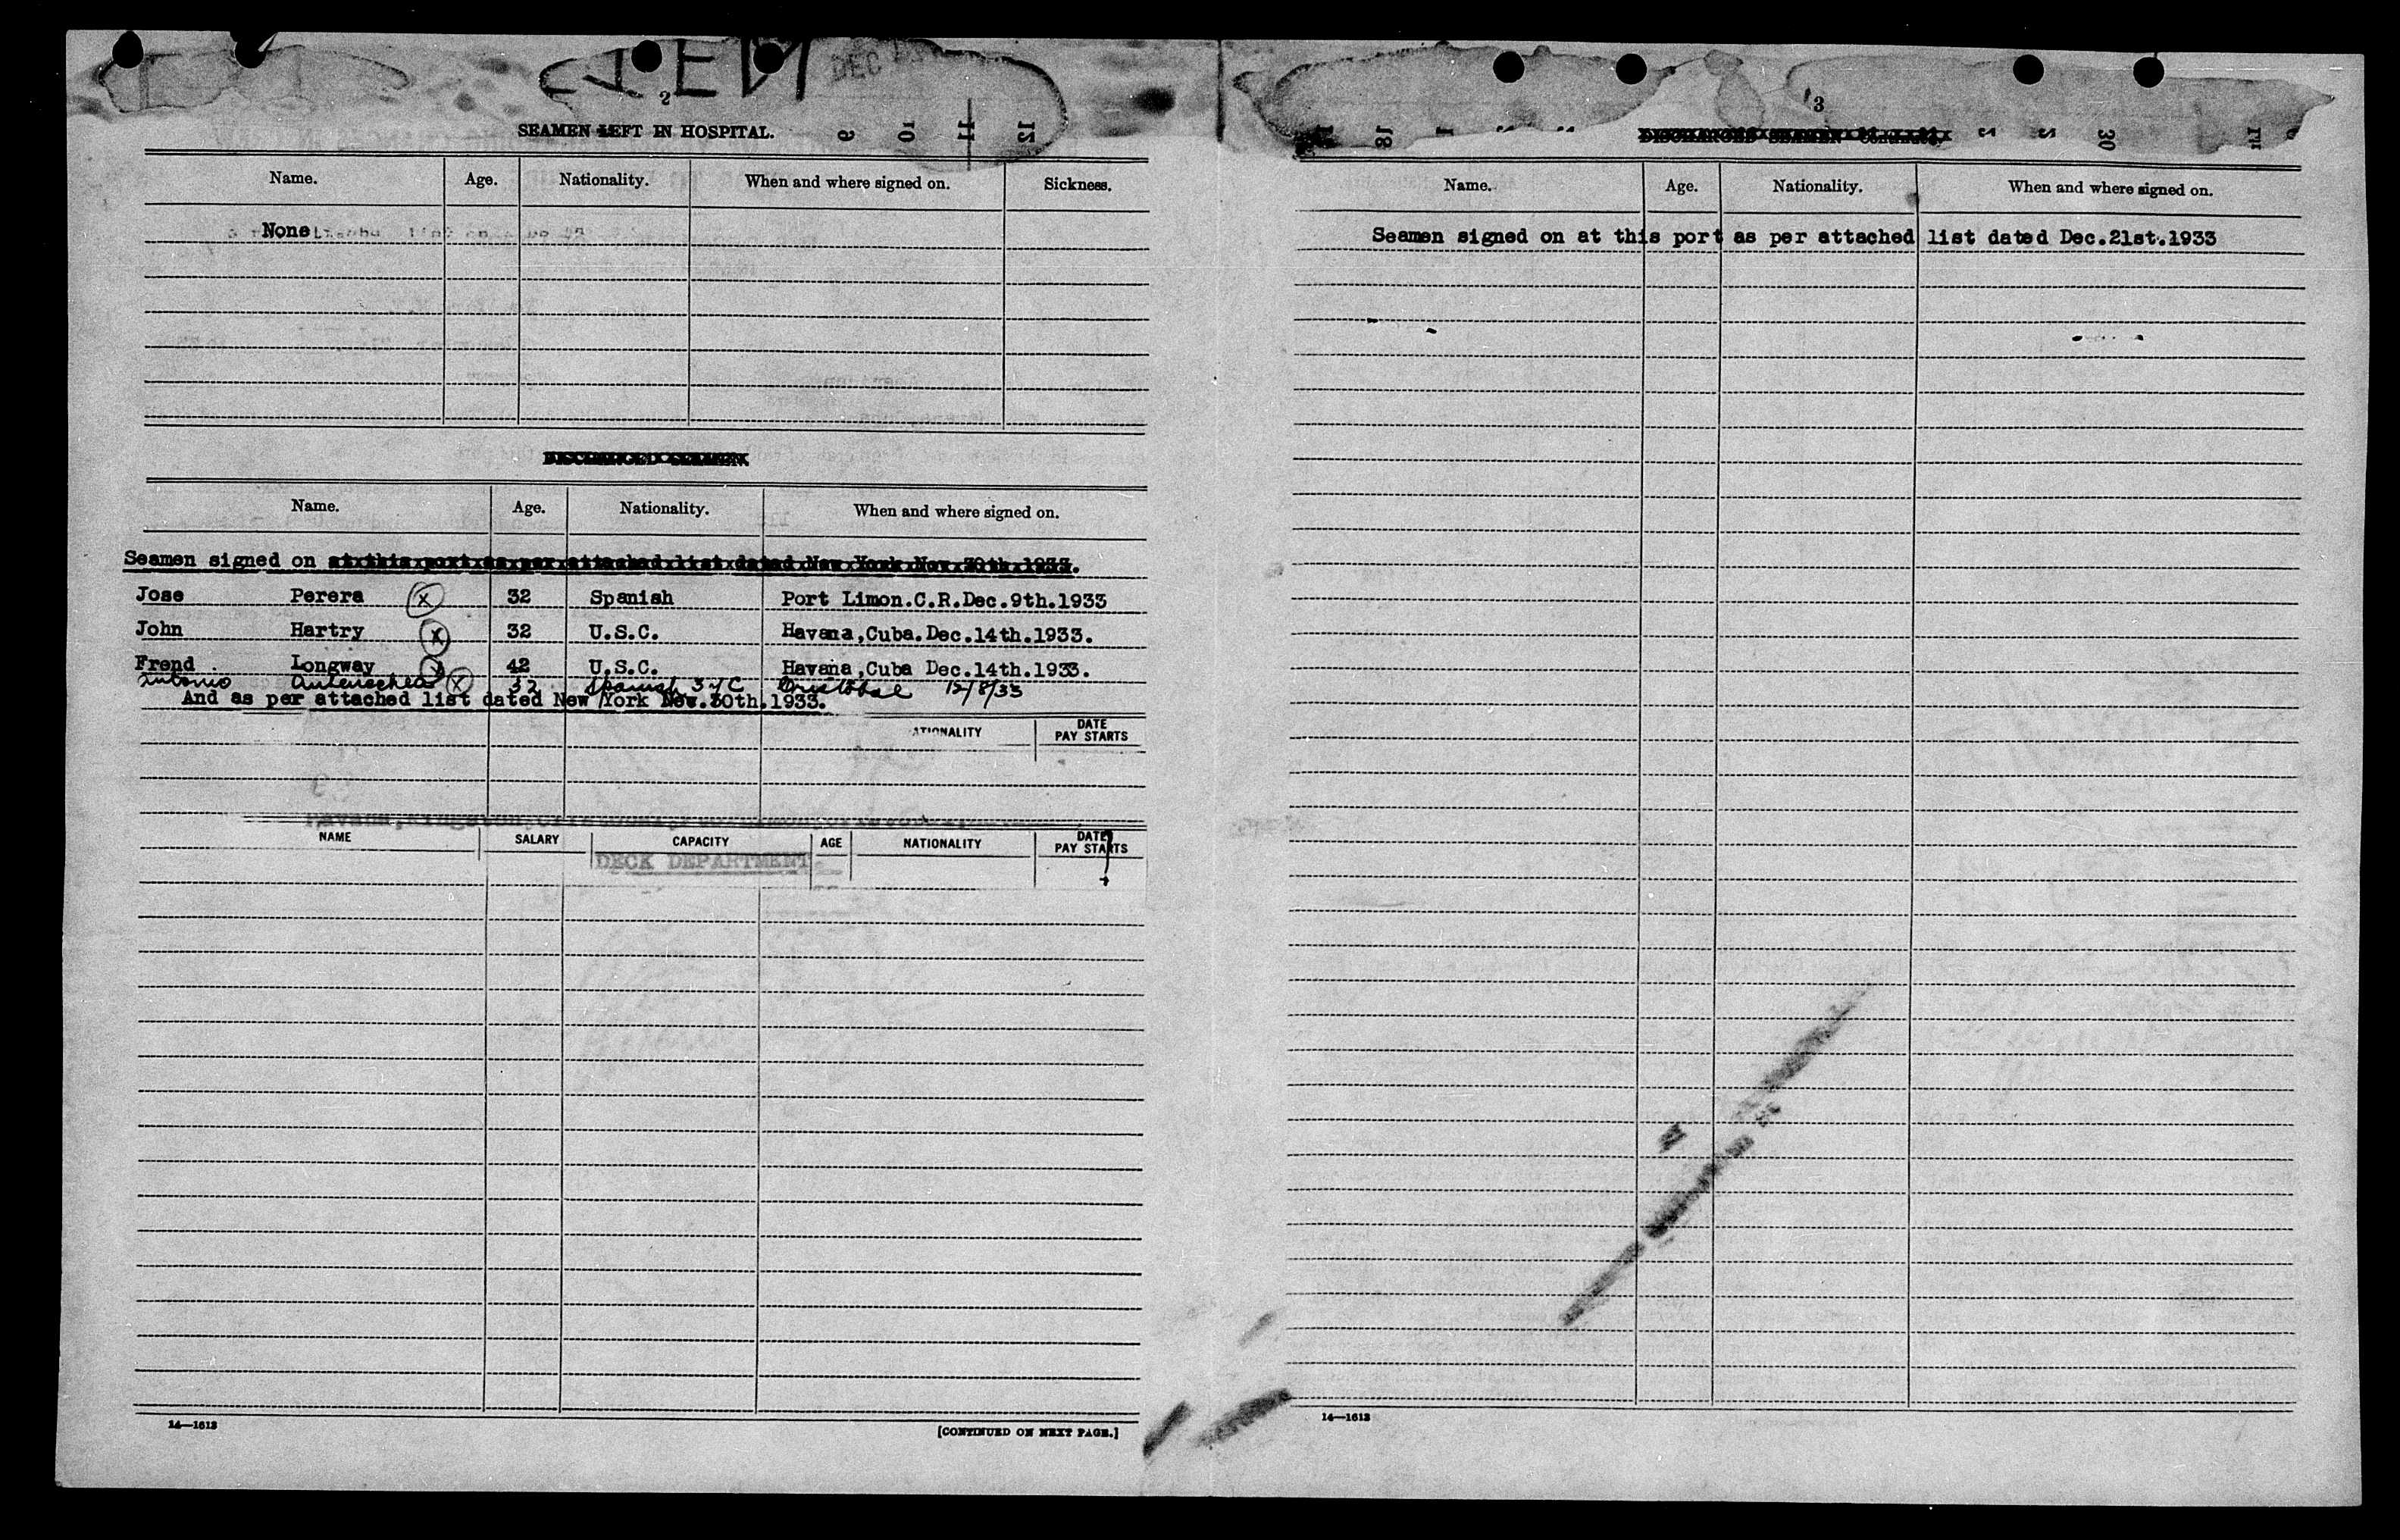 DEC
2
SEAMEN LEFT IN HOSPITAL.
9 10 11 12
Name. Age. Nationality. When and where signed on. Sickness.
None
DISCHARGED SEAMEN
Name. Age. Nationality. When and where signed on.
Seamen signed on at this port as per attached list dated New York Nov. 30th.1933.
Jose Perera X 32 Spanish Port Limon.C.R.Dec.9th.1933
John Hartry X 32 U.S.C. Havana,Cuba.Dec.14th.1933.
Frend Longway X 42 U.S.C. Havana,Cuba Dec.14th.1933.
Antonio X 32 Spanish Cristobal 12/8/33
And as per attached list dated New York Nov.30th.1933.
NATIONALITY DATE PAY STARTS
NAME SALARY CAPACITY AGE NATIONALITY DATE PAY STARTS
DECK DEPARTMENT.
14—1613
[CONTINUED ON NEXT PAGE.]
3
18 30
DISCHARGED SEAMEN—Continued.
Name. Age. Nationality. When and where signed on.
Seamen signed on at this port as per attached list dated Dec.21st.1933
14—1613